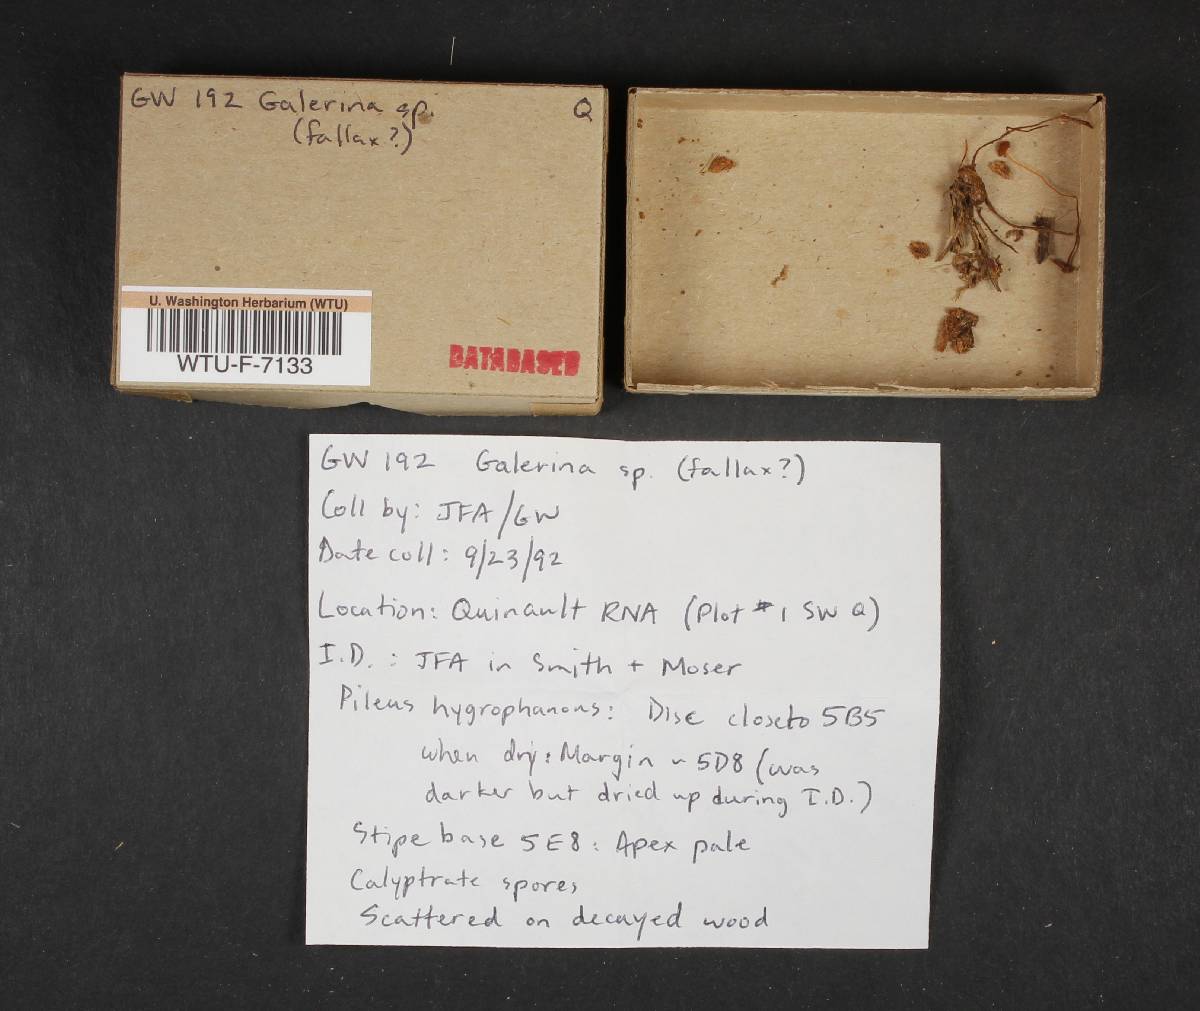 GW 192 Galerina sp. Q
(fallax?)
U. Washington Herbarium (WTU)
WTU-F-7133
DATABASED
GW 192 Galerina sp. (fallax?)
Coll by: JFA/GW
Date coll: 9/23/92
Location: Quinault RNA (Plot #1 SW Q)
I.D.: JFA in Smith + Moser
Pileus hygrophanous: Disc close to 5B5
when dry: Margin ~ 5D8 (was
darker but dried up during I.D.)
Stipe base 5E8: Apex pale
Calyptrate spores
Scattered on decayed wood